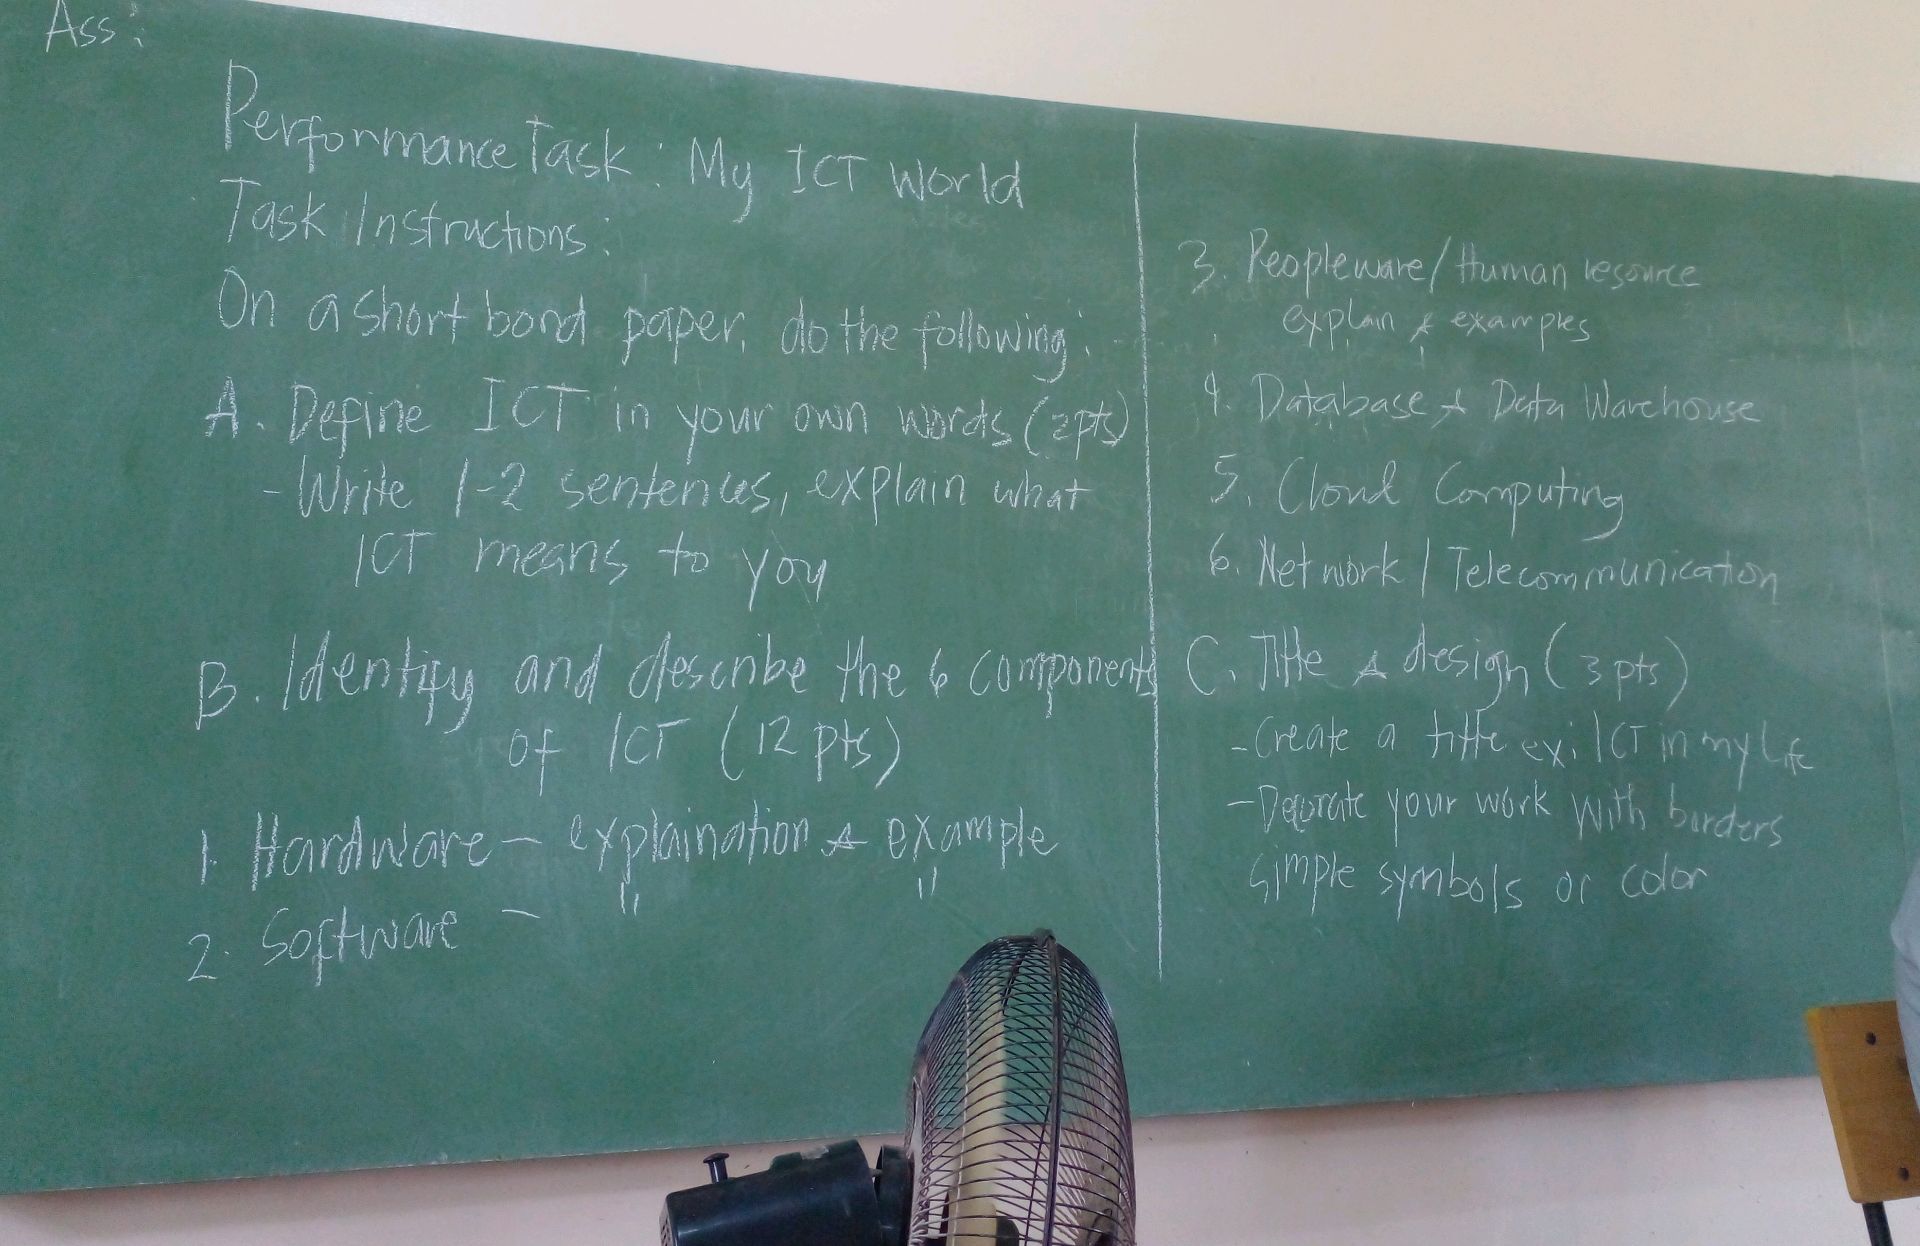 Ass:
Performance Task: My ICT World
Task Instructions:
On a short bond paper, do the following:
A. Define ICT in your own words (2pts)
- Write 1-2 sentences, explain what
ICT means to you
B. Identify and describe the 6 components
of ICT (12 pts)
1. Hardware - explaination & example
2. Software - " "
3. Peopleware / Human resource
explain & examples
4. Database & Data Warehouse
5. Cloud Computing
6. Network / Telecommunication
C. Title & design (3 pts)
- Create a title ex: ICT in my Life
- Decorate your work with borders
simple symbols or color